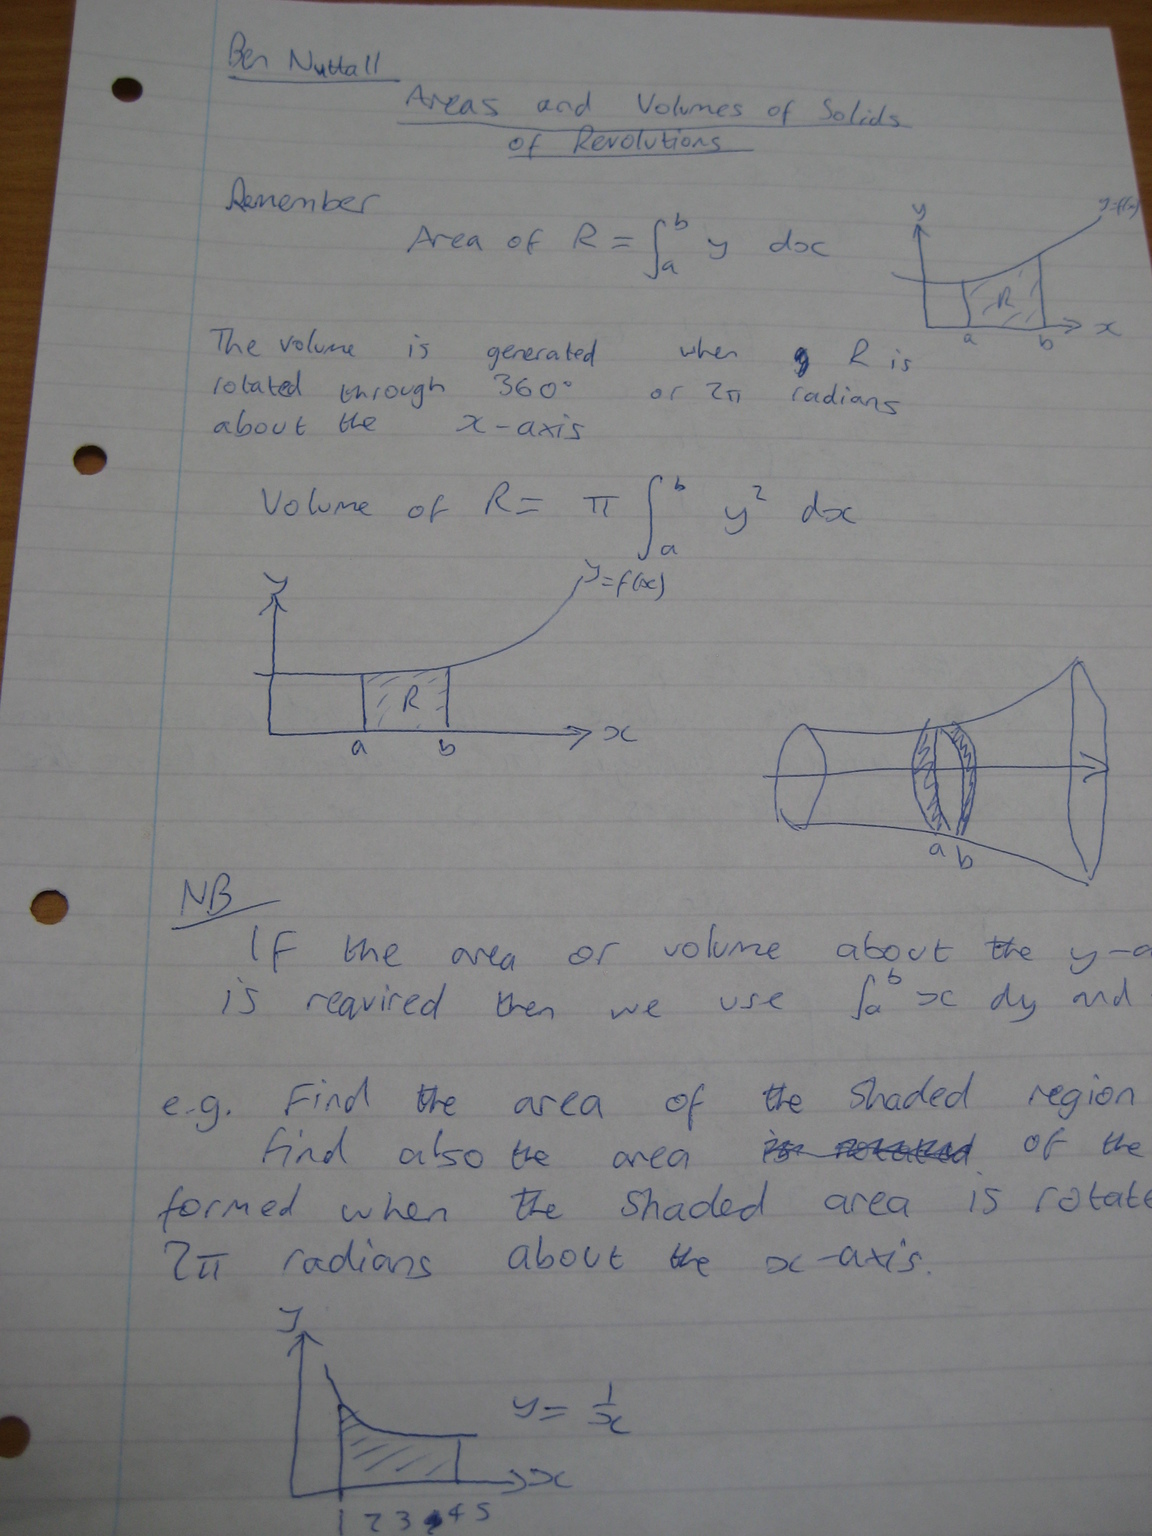 Ben Nuttall
Areas and Volumes of Solids
of Revolutions
Remember
Area of R = ∫_a^b y dx
y y=f(x)
R
a b x
The volume is generated when R is
rotated through 360° or 2π radians
about the x-axis
Volume of R = π ∫_a^b y² dx
y y=f(x)
R
a b x
a b
NB
If the area or volume about the y-a
is required then we use ∫_a^b x dy and
e.g. Find the area of the shaded region
find also the area of the
formed when the shaded area is rotate
2π radians about the x-axis.
y
y = 1/x
x
1 2 3 4 5